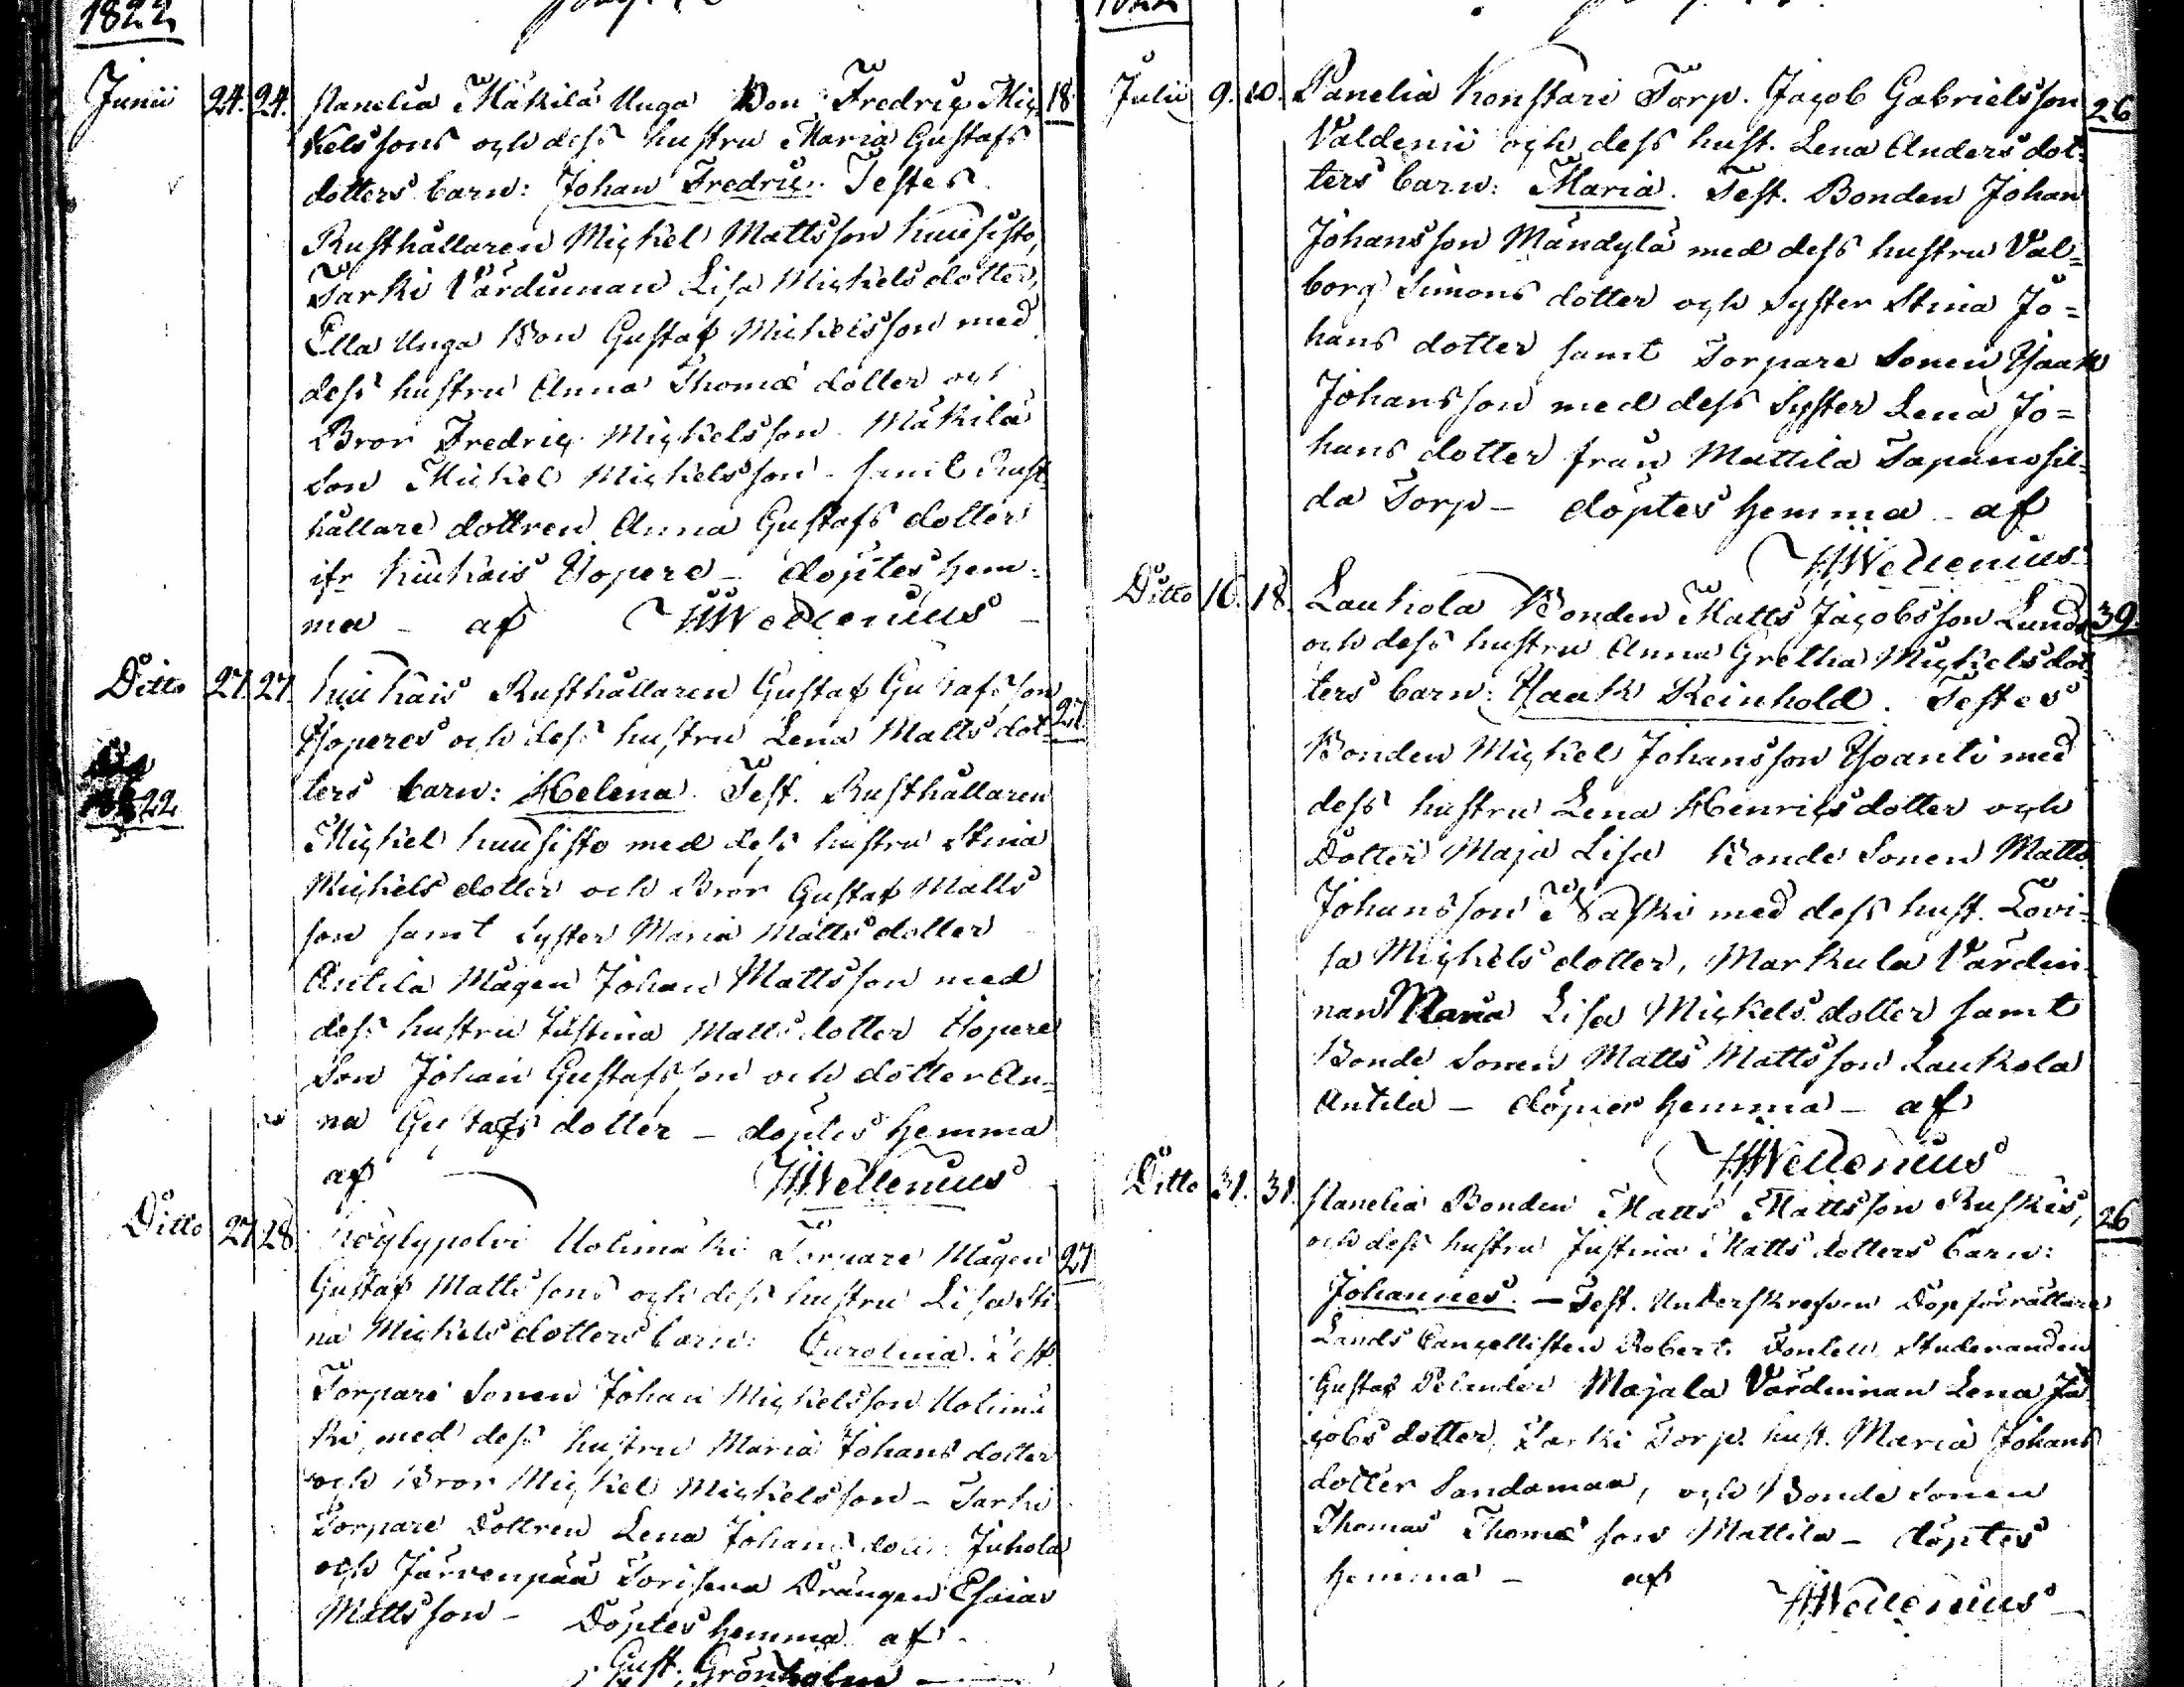 1822
Junii 24. 24. Panelia Mäkilä Unga Bon Fredric Mic 18
kelssons och dess hustru Maria Gustafs
dotters barn: Johan Fredric. Testes
Rusthållaren Mickel Mattsson Kuusisto,
Tarki Värdinnan Lisa Mickelsdotter,
Ella Unga Bon Gustaf Mickelsson med
dess hustru Anna Thomæ dotter och
Bror Fredric Mickelsson Mäkilä
Son Mickel Mickelsson – samt Rust
hållare dottren Anna Gustafs dotter
ifr Kiukais Uopere – döptes hem=
ma – af HWellenius –
Ditto 27. 27. Kiukais Rusthållaren Gustaf Gustafsson 27
Uoperes och dess hustru Lena Matts dot=
ters barn: Helena. Test. Rusthållaren
1822
Mickel Kuusisto med dess hustru Stina
Mickels dotter och Bror Gustaf Matts
son samt Syster Maria Matts dotter
Antila Mågen Johan Mattsson med
dess hustru Justina Matts dotter Uopere
Son Johan Gustafsson och dotter An=
na Gustafs dotter – döptes hemma
af HWellenius
Ditto 27 28. Köylypolvi Uolimäki Torpare Mågen 27
Gustaf Mattssons och dess hustru Lisa Sti
na Mickels dotters barn: Carolina. Test.
Torpare Sonen Johan Mickelsson Uolimä
ki, med dess hustru Maria Johans dotter
och Bror Mickel Mickelsson – Tarki
Torpare Dottren Lena Johans dott. Juhola
och Järvenpää Drängen Esaias
Mattsson – Döptes hemma af
Gust. Grönholm
Julii 9. 10. Panelia Konstari Torp. Jacob Gabrielsson 26
Valdenii och dess hust. Lena Anders dot=
ters barn: Maria. Test. Bonden Johan
Johansson Mändylä med dess hustru Val=
borg Simons dotter och Syster Stina Jo=
hans dotter samt Torpare Sonen Ysaak
Johansson med dess Syster Lena Jo=
hans dotter från Mattila
da Torp – döptes hemma – af
HWellenius
Ditto 16. 18. Laukola Bonden Matts Jacobsson Lunds 39
och dess hustru Anna Gretha Mickels dot
ters barn: Ysaak Reinhold. Testes
Bonden Mickel Johansson Yoanti med
dess hustru Lena Henrics dotter och
Dotter Maja Lisa Bonde Sonen Matts
Johansson med dess hust. Lovi=
sa Mickels dotter, Markula Värdin=
nan Maria Lisa Mickels dotter samt
Bonde Sonen Matts Mattsson Laukola
Antila – döptes hemma – af
HWellenius
Ditto 31. 31. Panelia Bonden Matts Mattsson Ruskis, 26
och dess hustru Justina Matts dotters barn:
Johannes. – Test. Underskrefven Dopförrättare
Lands Cancellisten Robert Studeranden
Gustaf Pelander Majala Värdinnan Lena Ja
cobs dotter, Tarki Torp. hust. Maria Johans
dotter Sandamaa, och Bonde Sonen
Thomas Thomæ son Mattila – döptes
hemma – af HWellenius –